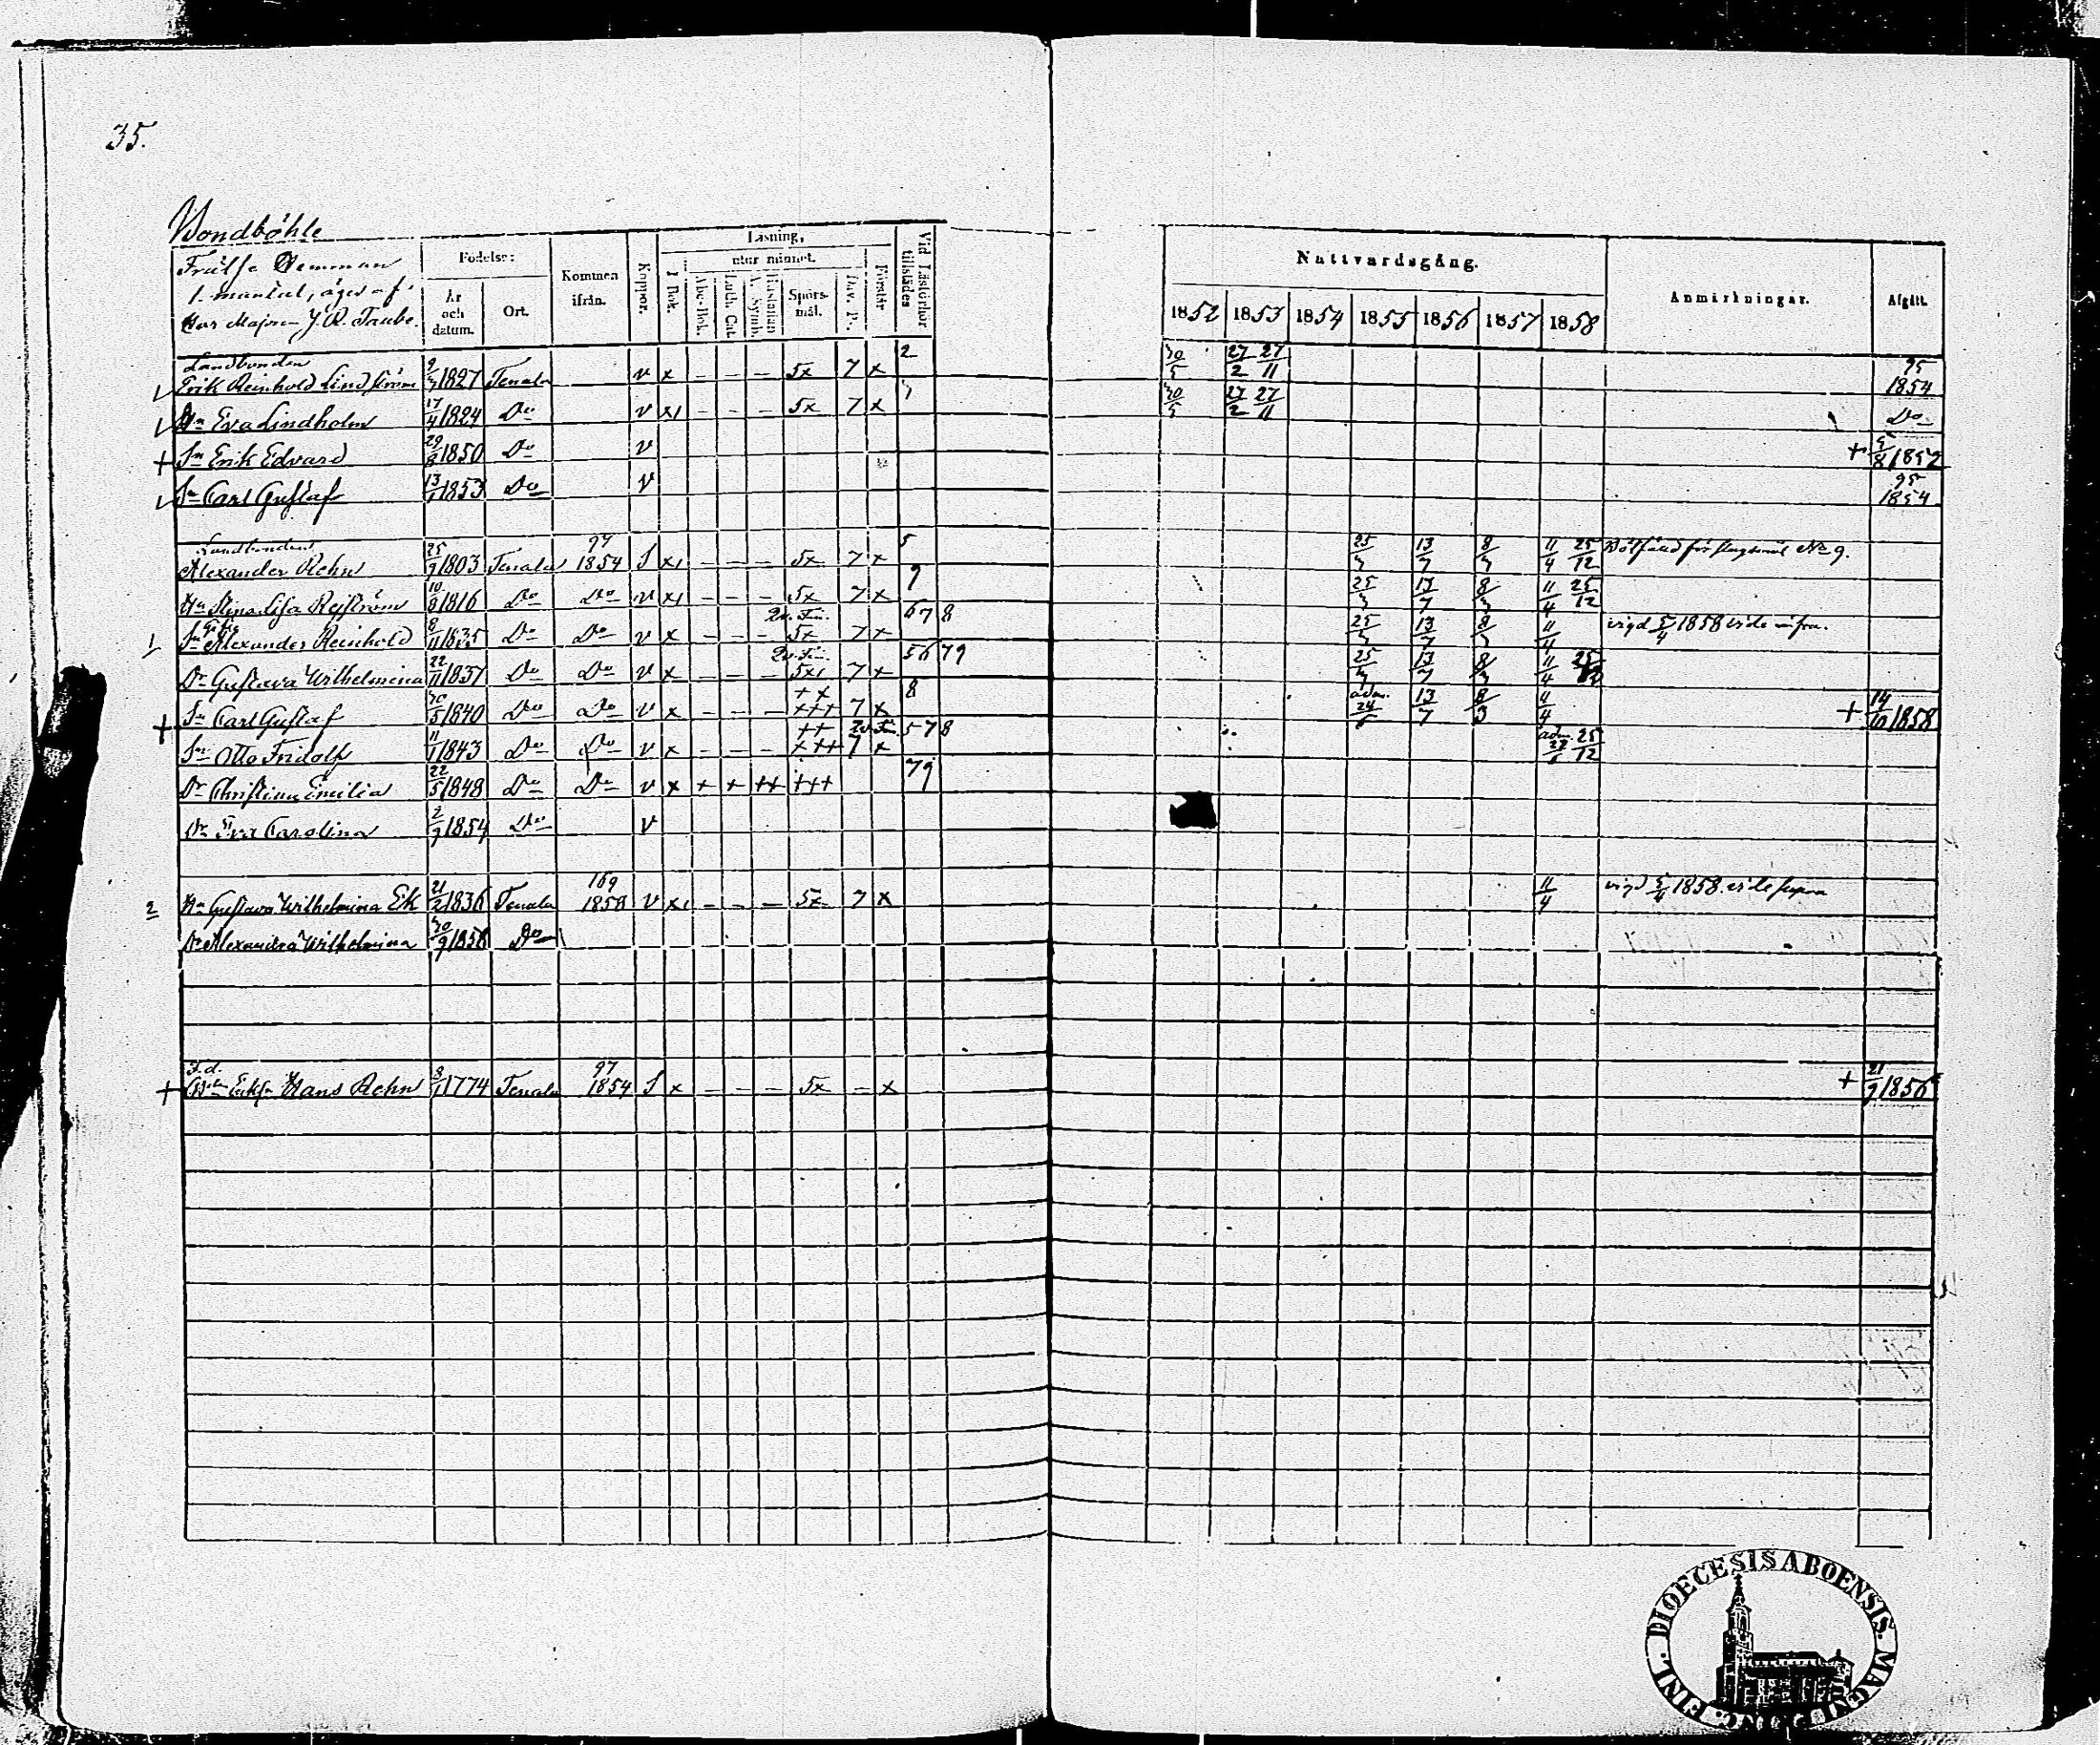 35.
Bondböhle
Frälse Hemman
1 mantal, äges af
Herr Majoren J. R. Taube.
Födelse:
År och datum.
Ort.
Kommen ifrån.
Koppor.
Läsning,
utur minnet.
I Bok.
Abc-Bok.
Luth. Cat.
A. Symb.
Hustaflan
Spörsmål.
Dav. P.
Förstår
Vid Läsförhör tillstädes
Nattvardsgång.
1852 1853 1854 1855 1856 1857 1858
Anmärkningar.
Afgått.
Landbonden
Erik Reinhold Lindström 9/3 1827 Tenala v x - - - 5x 7 x 2 30/5 27/2 27/11 95 1854
Hu Eva Lindholm 17/4 1824 Do v x - - - 5x 7 x 30/5 27/2 27/11 Do
+ Sn Erik Edvard 29/8 1850 Do v + 5/8 1852
Sn Carl Gustaf 13/1 1853 Do v 95 1854
Landbonden
Alexander Rehn 25/7 1803 Tenala 97 1854 S x - - - 5x 7 x 5 25/3 13/7 8/3 11/4 25/12 No 9.
Hu Stina Lisa Rejström 10/8 1816 Do Do v x - - - 5x 7 x 9 25/3 13/7 8/3 11/4 25/12
1 Sn Alexander Reinhold 8/11 1835 Do Do v x - - - 5x 7 x 678 25/3 13/7 8/3 11/4 vigd 5/4 1858 vide infra.
Dr Gustava Wilhelmina 22/11 1837 Do Do v x - - - 5x 7 x 5679 25/3 13/7 8/3 11/4 25/12
+ Sn Carl Gustaf 30/5 1840 Do Do v x - - - 7 x 8 adm. 24/6 13/7 8/3 11/4 + 14/10 1858
Sn Otto Fridolf 11/1 1843 Do Do v x - - - 7 x 578 adm. 22/5 25/12
Dr Christina Emilia 22/5 1848 Do Do v x + + ++ +++ 79
Dr Eva Carolina 2/7 1854 Do v
2 Hu Gustava Wilhelmina Ek 21/2 1836 Tenala 169 1858 v x - - - 5x 7 x 11/4 vigd 5/4 1858 vide supra
Dr Alexandra Wilhelmina 30/9 1858 Do
F.d.
+ Hans Rehn 8/1 1774 Tenala 97 1854 S x - - - 5x - x + 21/9 1856
DIOECESIS ABOENSIS. MAGNI DUC: FINL.